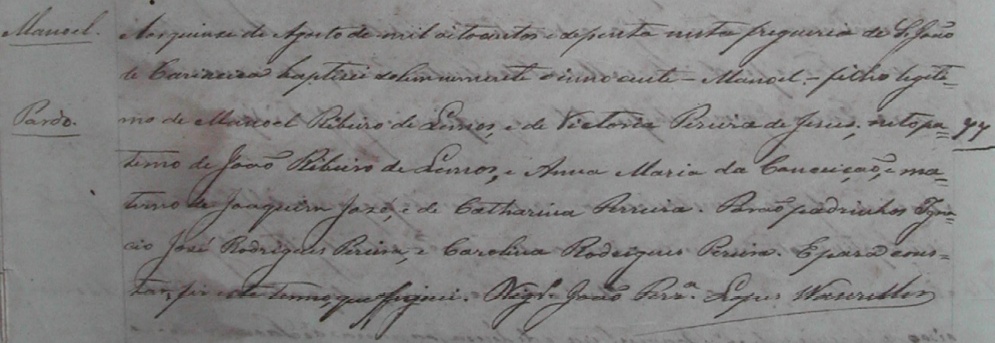 Manoel. Aos quinze de Agosto de mil oitocentos e setenta nesta freguezia de S. João
de baptizei solemnemente o innocente - Manoel. - filho legiti-
Pardo. mo de Manoel Ribeiro de Lemos, e de Victoria Pereira de Jesus; neto pa- 77
terno de João Ribeiro de Lemos, e Anna Maria da Conceição, e ma-
terno de Joaquim José, e de Catharina Pereira. Forão padrinhos Igna-
cio José Rodrigues Pereira, e Carolina Rodrigues Pereira. E para cons-
tar, fiz este termo, que assignei. João Perª. Lopes